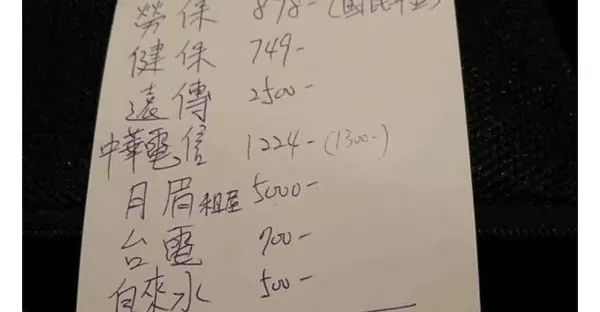 勞保 878- (國民年金)
健保 749-
遠傳 2500-
中華電信 1224- (1300-)
月眉租屋 5000-
台電 700-
自來水 500-